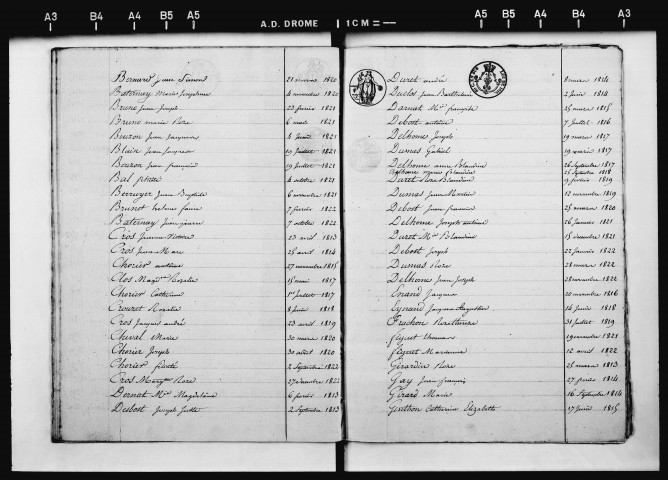 A3 B4 A4 B5 A5 A.D. DROME 1CM = A5 B5 A4 B4 A3
Bernard jean Simon 21 1820
Baternay Marie Josephine 4 novembre 1820
Brune jean Joseph 23 fevrier 1821
Brune marie Rose 6 mai 1821
Buxon Jean Jacques 4 juin 1821
Blain Jean Jacques 19 juillet 1821
Bouzon Jean françois 19 juillet 1821
Bal 4 octobre 1821
Berruyer Jean Baptiste 6 novembre 1821
Brunot helene fanie 7 fevrier 1822
Baternay Jean pierre 7 octobre 1822
Cros Jeanne Victoire 23 avril 1813
Cros Jean Marc 25 avril 1814
Chorier antoine 27 novembre 1815
Clos Magd.ne Rosalie 15 mai 1817
Chorier Catherine 1er Juillet 1817
Crouzet Rosalie 8 juin 1818
Cros Jacques andré 23 avril 1819
Cheval Marie 30 mars 1820
Chorier Joseph 30 août 1820
Chorier 2 Septembre 1822
Cros Marg.te Rose 27 décembre 1822
Dernat M.ie Magdeleine 6 fevrier 1813
Debost Joseph 2 Septembre 1813
Duret andré 8 mars 1814
Duclos Jean Barthelemi 2 juin 1814
Darnat M.ie françoise 25 mars 1815
Debost antoine 7 juillet 1816
Delhome Joseph 19 mars 1817
Dumas Gabriel 19 1817
Delhome anne Blandine 26 Septembre 1817
Delhome marie Blandine 25 Septembre 1818
Duret Rose Blandine 15 fevrier 1819
Dumas Jean Martin 12 novembre 1819
Debost Jean francois 25 mars 1820
Delhome Joseph antoine 26 janvier 1821
Duret M.ie Blandine 15 décembre 1821
Debost Joseph 22 Janvier 1822
Dumas Rose 28 mars 1822
Delhome Jean Joseph 28 novembre 1822
Enand Jacques 20 novembre 1816
Eynard Jacques Augustin 14 juin 1818
Frachon 31 juillet 1819
19 novembre 1821
Marianne 12 avril 1822
Girardin Rose 25 mars 1813
Gay Jean françois 27 mars 1814
Girard Marie 16 Septembre 1814
Gonthon Catherine Elizabeth 17 juin 1815